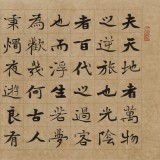 夫天地者萬物
之逆旅也光陰
者百代之過客
也而浮生若夢
為歡幾何古人
秉燭夜遊良有